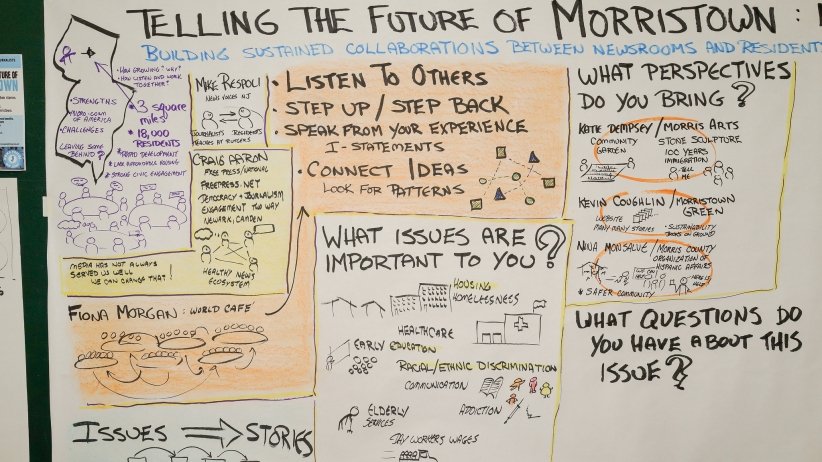 TELLING THE FUTURE OF MORRISTOWN :
BUILDING SUSTAINED COLLABORATIONS BETWEEN NEWSROOMS AND RESIDENTS
• HOW GROWING? WHY?
• HOW LISTEN AND WORK
TOGETHER?
• STRENGTHS
OF AMERICA
• CHALLENGES
LEAVING SOME
BEHIND?
• 3 SQUARE
MILES
• 18,000
RESIDENTS
• RAPID DEVELOPMENT
• STRONG CIVIC ENGAGEMENT
MEDIA HAS NOT ALWAYS
SERVED US WELL
WE CAN CHANGE THAT!
MIKE RISPOLI
NEWS VOICES NJ
JOURNALISTS
RESIDENTS
TEACHES AT RUTGERS
CRAIG AARON
FREE PRESS/NATIONAL
FREEPRESS.NET
DEMOCRACY + JOURNALISM
ENGAGEMENT TWO WAY
NEWARK, CAMDEN
HEALTHY NEWS
ECOSYSTEM
FIONA MORGAN: WORLD CAFÉ
• LISTEN TO OTHERS
• STEP UP / STEP BACK
• SPEAK FROM YOUR EXPERIENCE
I-STATEMENTS
• CONNECT IDEAS
LOOK FOR PATTERNS
WHAT PERSPECTIVES
DO YOU BRING?
KATIE DEMPSEY/MORRIS ARTS
COMMUNITY
GARDEN
STONE SCULPTURE
100 YEARS
IMMIGRATION
TELL
ME
KEVIN COUGHLIN/MORRISTOWN
GREEN
WEBSITE
MANY MANY STORIES
• SUSTAINABILITY
BOOTS ON GROUND
NINA MONSALVE/MORRIS COUNTY
ORGANIZATION OF
HISPANIC AFFAIRS
* SAFER COMMUNITY
WHAT ISSUES ARE
IMPORTANT TO YOU?
HOUSING
HOMELESSNESS
HEALTHCARE
EARLY EDUCATION
RACIAL/ETHNIC DISCRIMINATION
COMMUNICATION
ELDERLY
SERVICES
ADDICTION
DAY WORKERS WAGES
WHAT QUESTIONS DO
YOU HAVE ABOUT THIS
ISSUE?
ISSUES
STORIES